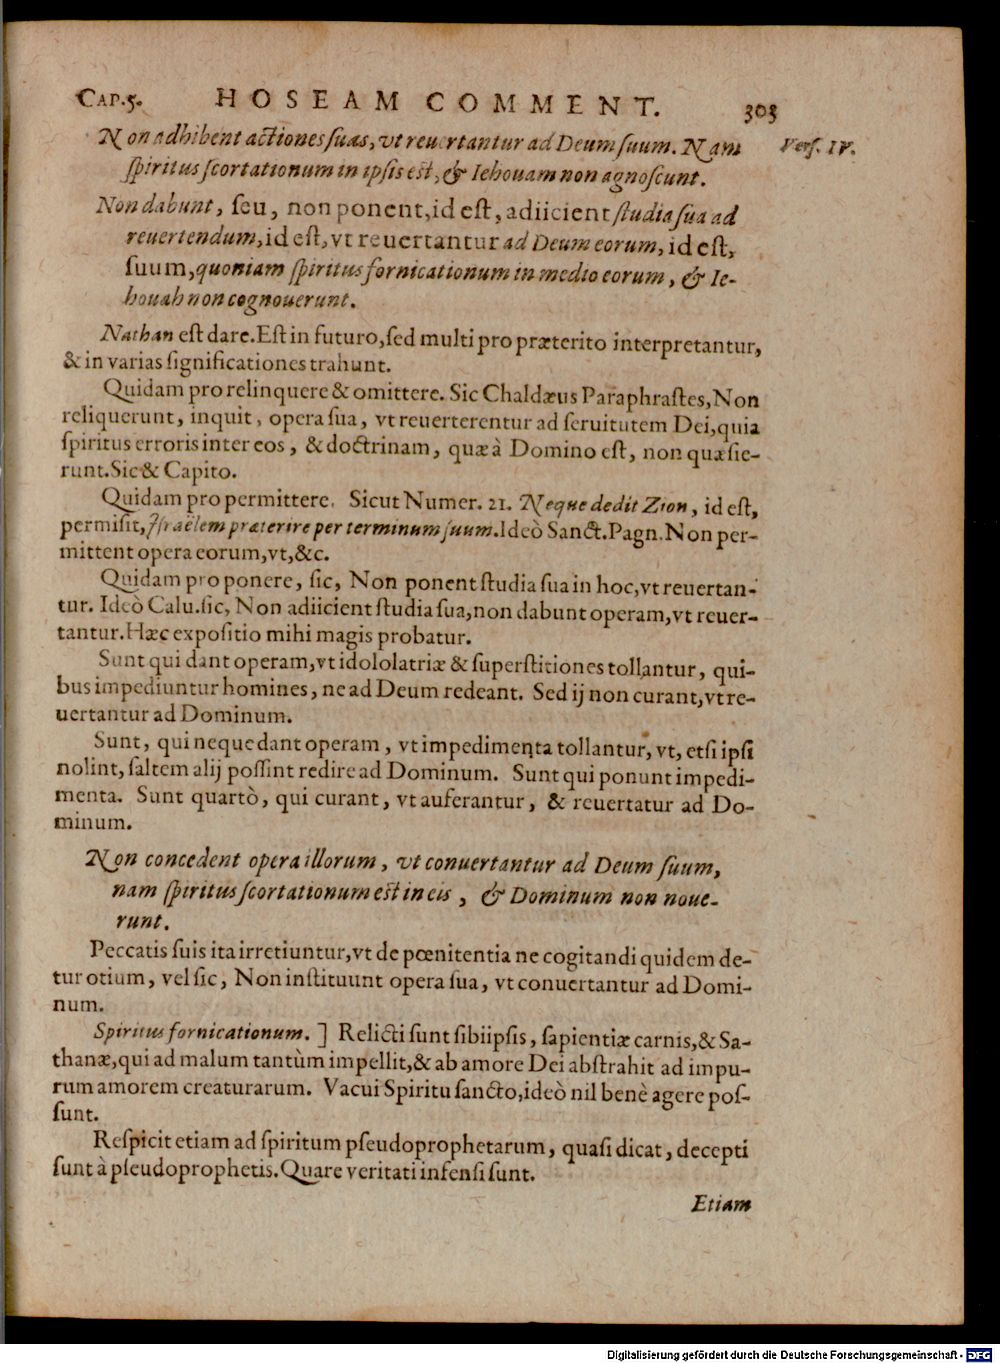 CAP. 5. HOSEAM COMMENT. 303
Non adhibent actiones ſuas, vt reuertantur ad Deum ſuum. Nam Verſ. IV.
ſpiritus ſcortationum in ipſis eſt, & Iehouam non agnoſcunt.
Non dabunt, ſeu, non ponent, id eſt, adiicient ſtudia ſua ad
reuertendum, id eſt, vt reuertantur ad Deum eorum, id eſt,
ſuum, quoniam ſpiritus fornicationum in medio eorum, & Ie-
houah non cognouerunt.
Nathan eſt dare. Eſt in futuro, ſed multi pro præterito interpretantur,
& in varias ſignificationes trahunt.
Quidam pro relinquere & omittere. Sic Chaldæus Paraphraſtes, Non
reliquerunt, inquit, opera ſua, vt reuerterentur ad ſeruitutem Dei, quia
ſpiritus erroris inter eos, & doctrinam, quæ à Domino eſt, non quæſie-
runt. Sic & Capito.
Quidam pro permittere. Sicut Numer. 21. Neque dedit Zion, id eſt,
permiſit, Iſraëlem præterire per terminum ſuum. Ideò Sanct. Pagn. Non per-
mittent opera eorum, vt, &c.
Quidam pro ponere, ſic, Non ponent ſtudia ſua in hoc, vt reuertan-
tur. Ideò Calu. ſic, Non adiicient ſtudia ſua, non dabunt operam, vt reuer-
tantur. Hæc expoſitio mihi magis probatur.
Sunt qui dant operam, vt idololatriæ & ſuperſtitiones tollantur, qui-
bus impediuntur homines, ne ad Deum redeant. Sed ij non curant, vt re-
uertantur ad Dominum.
Sunt, qui neque dant operam, vt impedimenta tollantur, vt, etſi ipſi
nolint, ſaltem alij poſſint redire ad Dominum. Sunt qui ponunt impedi-
menta. Sunt quartò, qui curant, vt auferantur, & reuertatur ad Do-
minum.
Non concedent opera illorum, vt conuertantur ad Deum ſuum,
nam ſpiritus ſcortationum eſt in eis, & Dominum non noue-
runt.
Peccatis ſuis ita irretiuntur, vt de pœnitentia ne cogitandi quidem de-
tur otium, vel ſic, Non inſtituunt opera ſua, vt conuertantur ad Domi-
num.
Spiritus fornicationum. ] Relicti ſunt ſibiipſis, ſapientiæ carnis, & Sa-
thanæ, qui ad malum tantùm impellit, & ab amore Dei abſtrahit ad impu-
rum amorem creaturarum. Vacui Spiritu ſancto, ideò nil benè agere poſ-
ſunt.
Reſpicit etiam ad ſpiritum pſeudoprophetarum, quaſi dicat, decepti
ſunt à pſeudoprophetis. Quare veritati infenſi ſunt.
Etiam
Digitalisierung gefördert durch die Deutsche Forschungsgemeinschaft - DFG